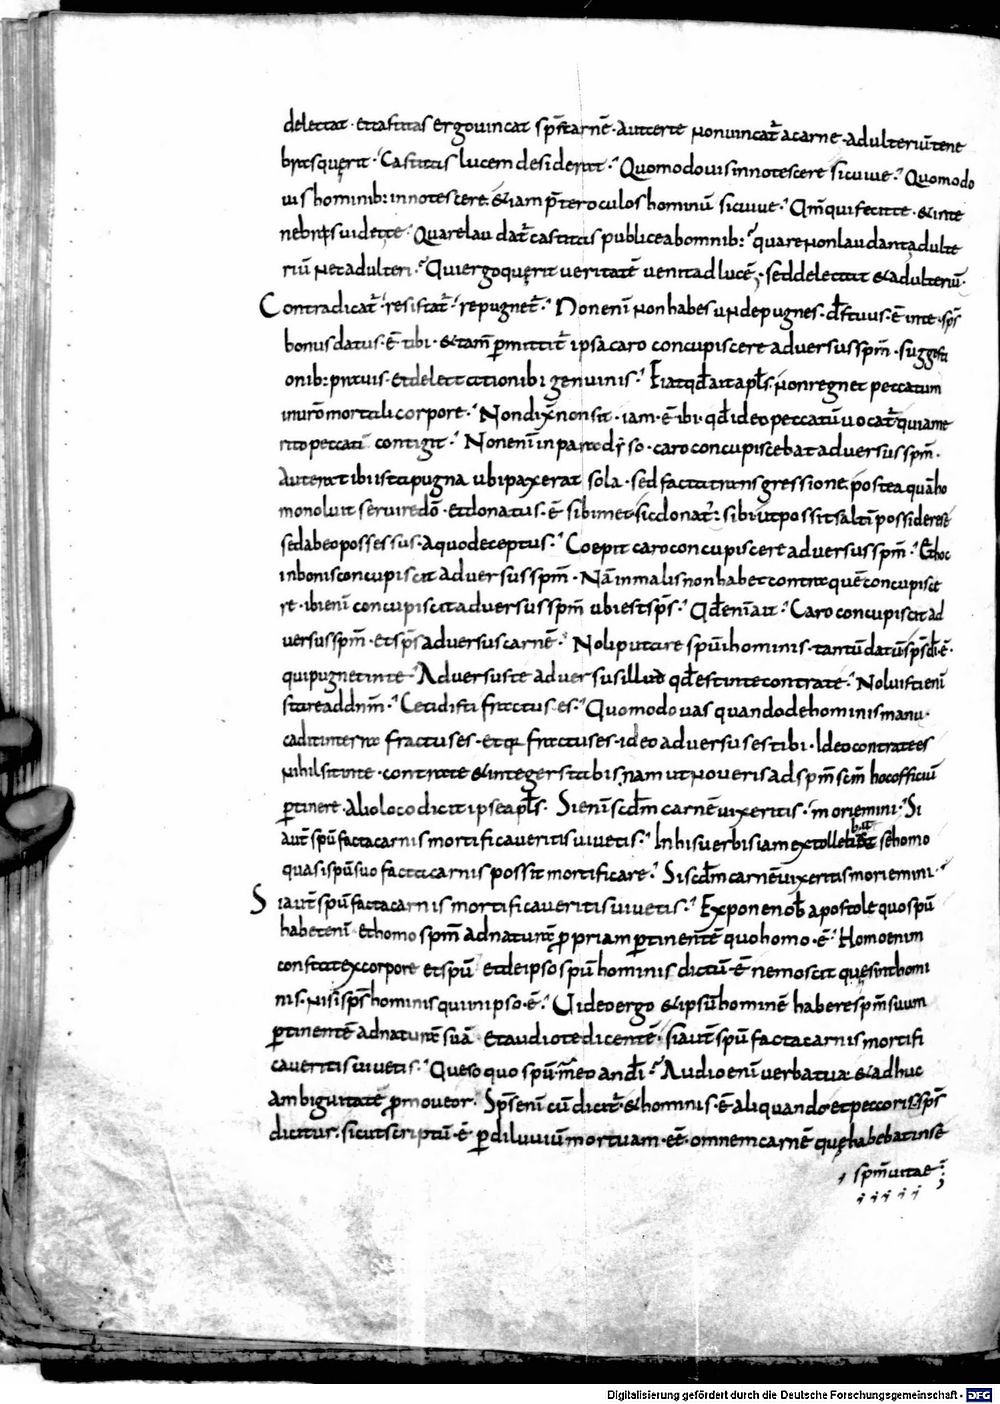 delectat · et castitas ergo uincat sp̄s carnē · aut certe non uincat̄ a carne · adulteriū tene
bras querit · Castitas lucem desiderat · Quomodo uis innotescere sic uiue · Quomodo
uis hominib: innotescere · & iam p̄ter oculos hominū sic uiue · Qm̄ qui fecit te · & in te
nebris uidet te · Quare laudat̄ castitas publice ab omnib: quare non laudant adulte
riū nec adulteri · Qui ergo querit ueritatē uenit ad lucē · sed delectat & adulteriū ·
Contradicat̄ · resistat̄ · repugnet̄ · Non enī non habes unde pugnes · d̄s tuus · ē in te · sp̄s
bonus datus · ē tibi · & tam̄ p̄mittit̄ ipsa caro concupiscere aduersus sp̄m · suggesti
onib: prauis · et delectationib: genuinis · Fiat qd̄ ait apl̄s · non regnet peccatum
in ur̄o mortali corpore · Non dix̄ non sit · iam · ē ibi · qd̄ ideo peccatū uocat̄ quia me
rito peccati contigit · Non enī in paradyso · caro concupiscebat aduersus sp̄m ·
aut erat ibi ista pugna ubi pax erat sola · sed facta transgressione postea quā ho
mo noluit seruire dō · et donatus · ē sibi met sic donat̄: sibi ut possit saltī possidere se
sed ab eo possessus · a quo deceptus · Coepit caro concupiscere aduersus sp̄m · Et hoc
in bonis concupiscit aduersus sp̄m · Nā in malis non habet contra quē concupisce
re · ibi enī concupiscit aduersus sp̄m ubi est sp̄s · Qd̄ enī ait · Caro concupiscit ad
uersus sp̄m · et sp̄s aduersus carnē · Noli putare spū hominis · tantū datū sp̄s dī · ē ·
qui pugnet in te · Aduersus te aduersus illud qd̄ est in te contra te · Noluisti enī
stare ad dn̄m · Cecidisti fractus es · Quomodo uas quando de hominis manu ·
cadit in terra fractus es · et q: fractus es · ideo aduersus es tibi · Ideo contra te es
nihil sit in te · contra te & integer stabis · nam ut noueris ad sp̄m sc̄m hoc officiū
p̄tinere · alio loco dicit ipse apl̄s · Si enī scd̄m carnē uixeritis · moriemini · Si
aut̄ spū facta carnis mortificaueritis uiuetis · In his uerbis iam extollebat se homo
quasi spū suo facta carnis possit mortificare · Si scd̄m carnē uixeritis moriemini ·
Si aut̄ spū facta carnis mortificaueritis uiuetis · Expone nob̄ apostole quo spū
habet enī et homo sp̄m ad naturā p̄priam p̄tinentē quo homo · ē · Homo enim
constat ex corpore et spū et de ipso spū hominis dictū · ē nemo scit que sint homi
nis · nisi sp̄s hominis qui in ipso · ē · Uideo ergo & ipsū hominē habere sp̄m suum
p̄tinentē ad naturā suā et audio te dicentē · si aut̄ spū facta carnis mortifi
caueritis uiuetis · Quero quo spū · meo an dī · Audio enī uerba tua & adhuc
ambiguitatē p̄moueor · Sp̄s enī cū dicit̄ · & hominis · ē aliquando et peccoris · sp̄s
dicitur · sicut scriptū · ē · p̄ diluuiū mortuam · eē · omnem carnē que habebat in se
sp̄m uitae
Digitalisierung gefördert durch die Deutsche Forschungsgemeinschaft - DFG